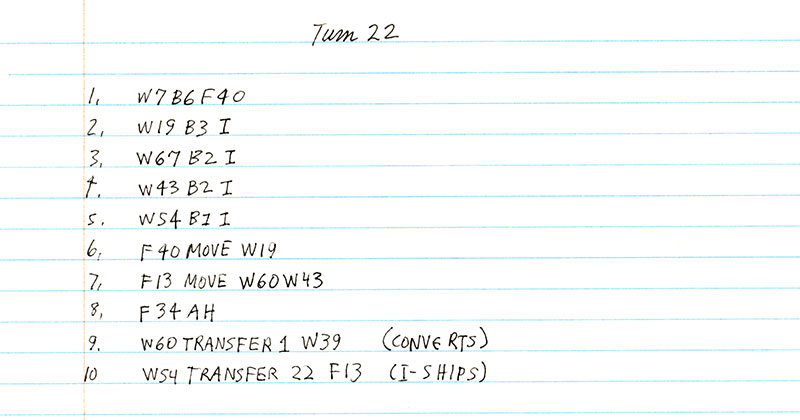 Turn 22
1. W7B6F40
2. W19 B3 I
3. W67 B2 I
4. W43 B2 I
5. W54 B1 I
6. F40 MOVE W19
7. F13 MOVE W60W43
8. F34 AH
9. W60 TRANSFER 1 W39 (CONVERTS)
10 W54 TRANSFER 22 F13 (I-SHIPS)